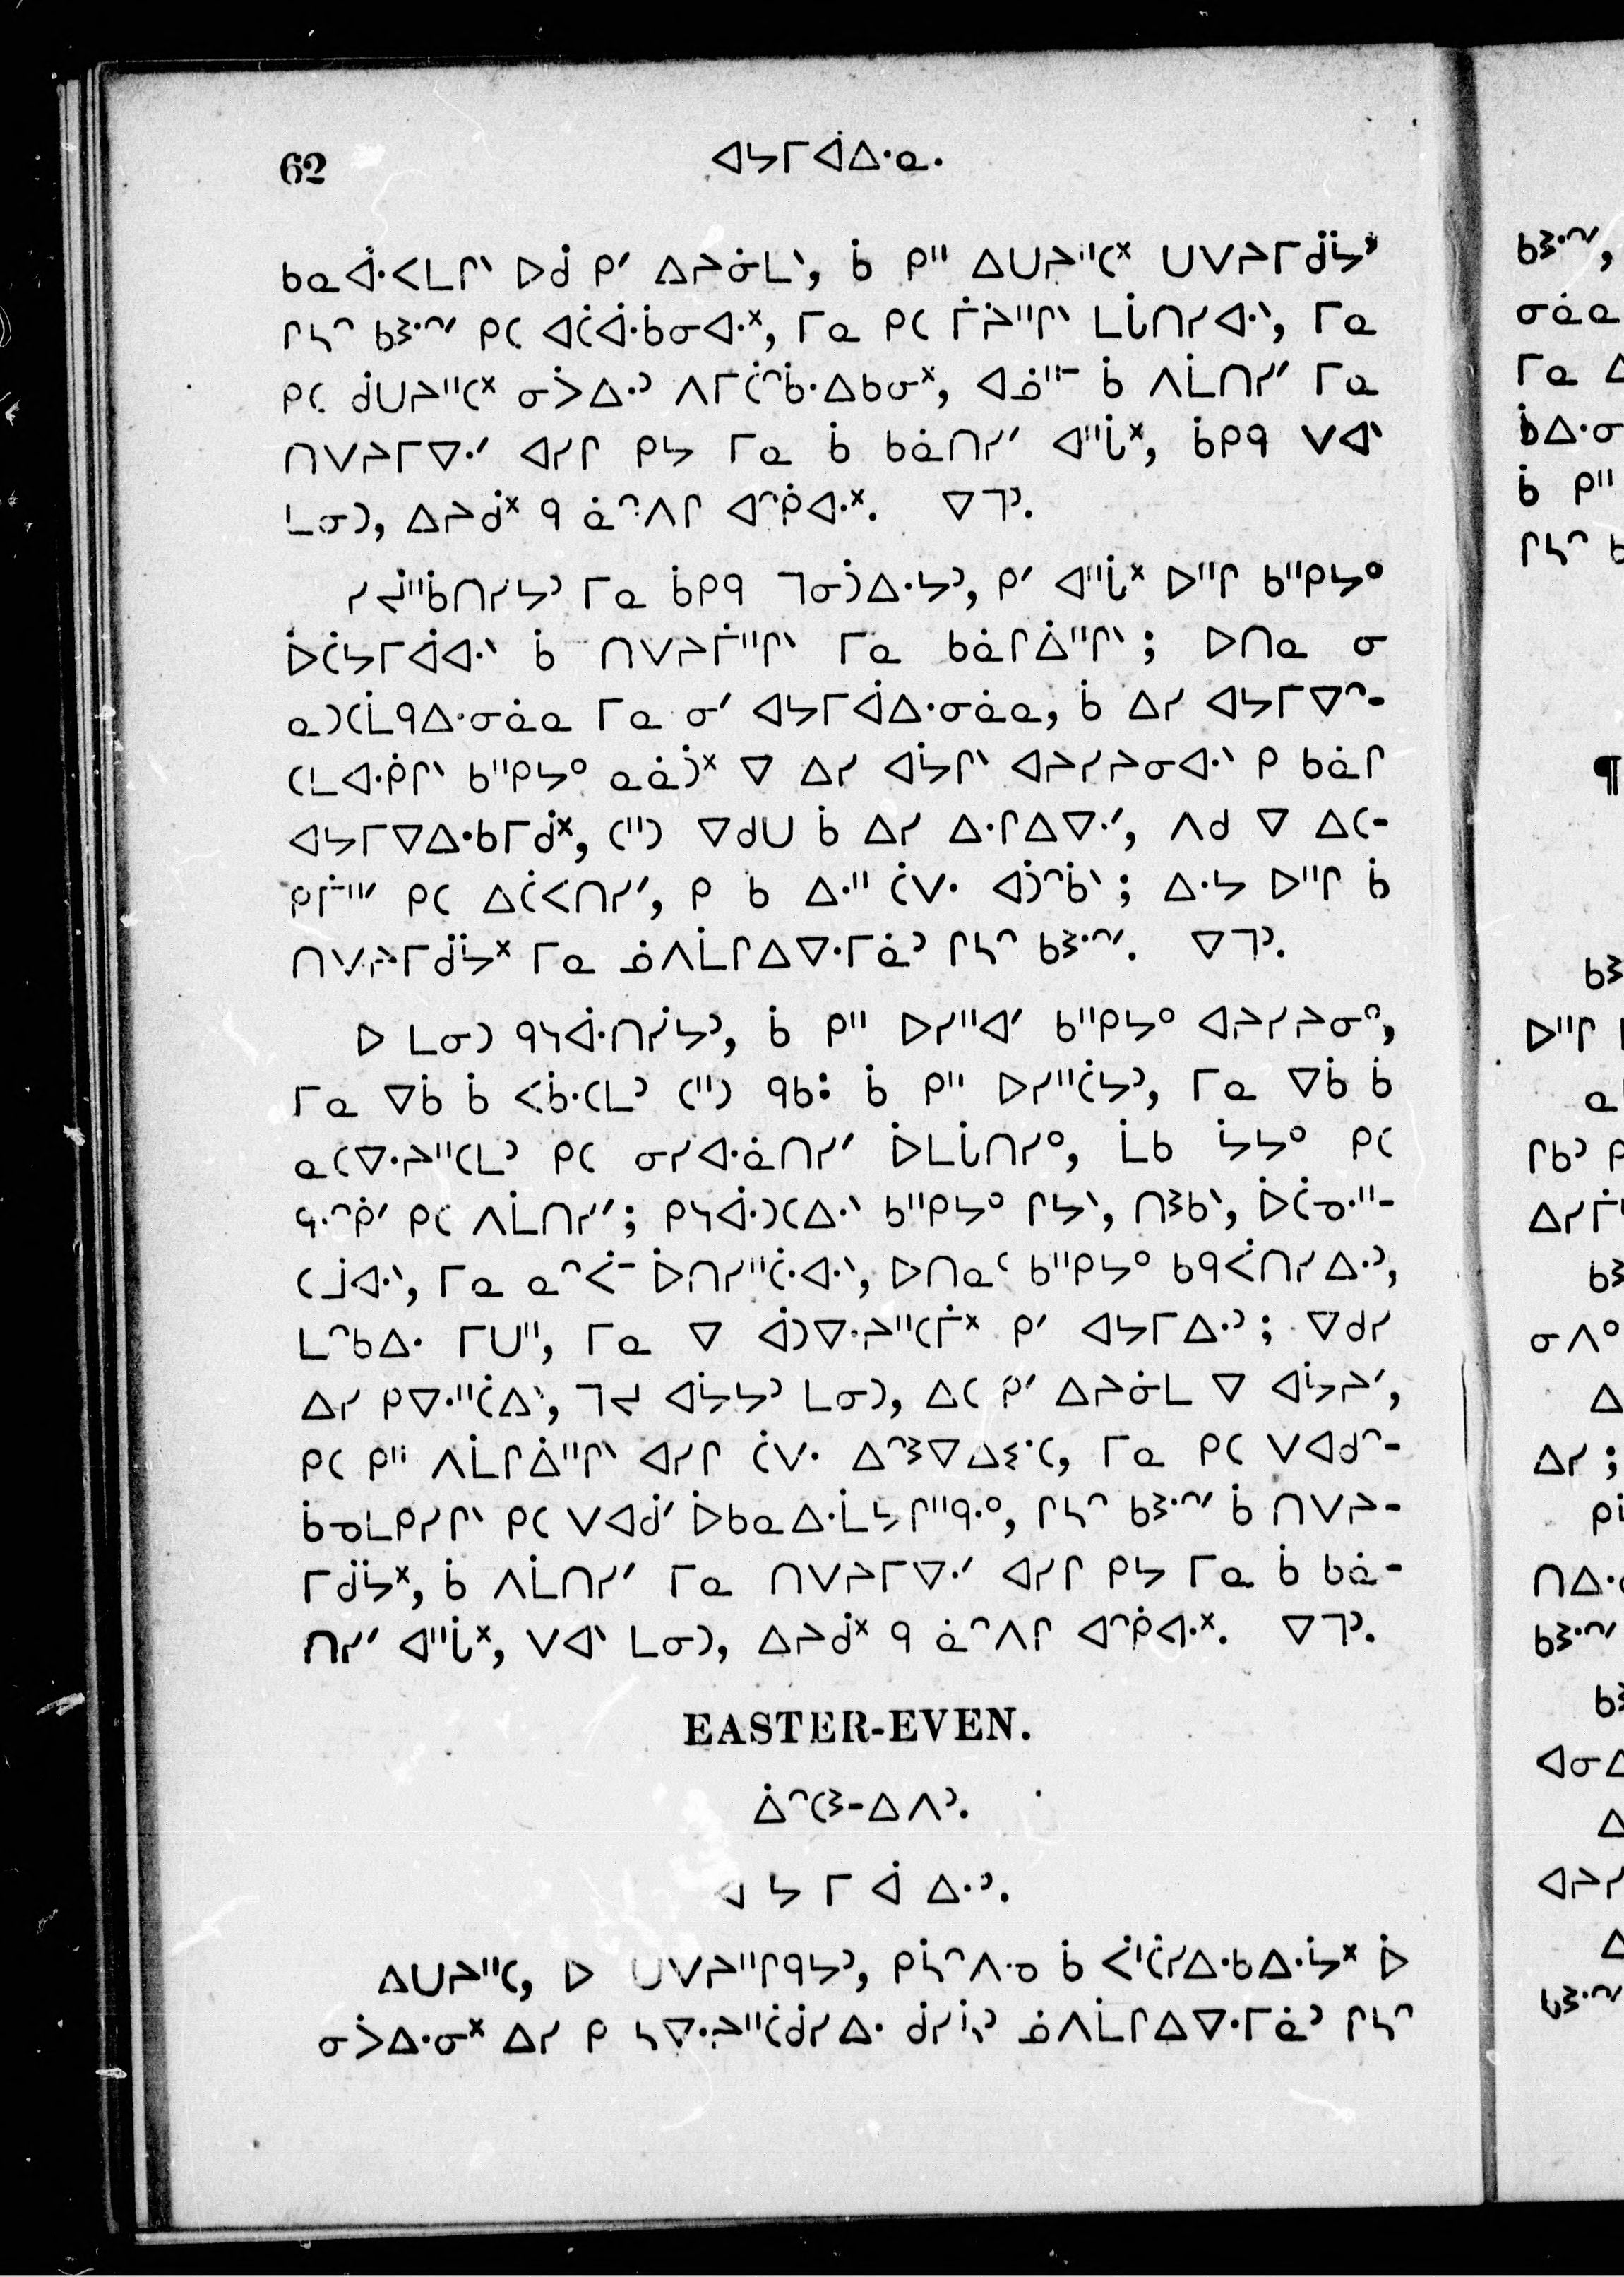 62 ᐊᔭᒥᐋᐃᐧᓇ.
ᑲᓇᐋᐧᐸᒪᒋᐠ ᐅᑰ ᑭᐟ ᐃᔨᓃᒪᐠ, ᑳ ᑭᐦ ᐃᑌᔨᐦᑕᕽ ᑌᐯᔨᒥᑰᔭᐣ
ᒋᓴᐢ ᑲᕒᐧᐢᐟ ᑭᑕ ᐊᑖᐋᐧᑳᓂᐊᐧᕽ, ᒥᓇ ᑭᑕ ᒦᔩᐦᒋᐠ ᒪᒑᑎᓯᐊᐧᐠ, ᒥᓇ
ᑭᑕ ᑰᑌᔨᐦᑕᕽ ᓂᐴᐃᐧᐣ ᐱᒥᑖᐢᑳᐧᐃᑲᓂᕽ, ᐊᓅᐦᐨ ᑳ ᐱᒫᑎᓯᐟ ᒥᓇ
ᑎᐯᔨᒥᐁᐧᐟ ᐊᓯᒋ ᑭᔭ ᒥᓇ ᑳ ᑲᓈᑎᓯᐟ ᐊᐦᒑᕽ, ᑳᑭᑫ ᐯᐊᐠ
ᒪᓂᑐ, ᐃᔨᑰᕽ ᑫ ᓈᐢᐱᒋ ᐊᐢᑮᐊᐧᕽ. ᐁᒣᐣ.
ᓯᓲᐦᑳᑎᓯᔭᐣ ᒥᓇ ᑳᑭᑫ ᒣᓂᑑᐃᐧᔭᐣ, ᑭᐟ ᐊᐦᒑᕽ ᐅᐦᒋ ᑲᐦᑭᔭᐤ
ᐆᑖᔭᒥᐋᐊᐧᐠ ᑳ ᑎᐯᔨᒦᐦᒋᐠ ᒥᓇ ᑲᓈᒋᐄᐦᒋᐠ; ᐅᑎᓇ ᓂ
ᓇᑐᑕᒫᑫᐃᐧᓂᓈᓇ ᒥᓇ ᓂᐟ ᐊᔭᒥᐋᐃᐧᓂᓈᓇ, ᑳ ᐃᓯ ᐊᔭᒥᐁᐢ-
ᑕᒪᐊᐧᑮᒋᐠ ᑲᐦᑭᔭᐤ ᓇᓈᑑᕽ ᐁ ᐃᓯ ᐊᔮᒋᐠ ᐊᔨᓯᔨᓂᐊᐧᐠ ᑭ ᑲᓈᒋ
ᐊᔭᒥᐁᐃᐧᑲᒥᑰᕽ, ᑕᐦᑐ ᐁᑯᑌ ᑳ ᐃᓯ ᐃᐧᒋᐃᐁᐧᐟ, ᐱᑯ ᐁ ᐃᑕ-
ᑭᒦᐦᐟ ᑭᑕ ᐃᑖᐸᑎᓯᐟ, ᑭ ᑲ ᐃᐧᐦ ᑖᐯᐧ ᐊᑑᐢᑳᐠ; ᐃᐧᔭ ᐅᐦᒋ ᑳ
ᑎᐯᔨᒥᑰᔭᕽ ᒥᓇ ᓅᐱᒫᒋᐃᐁᐧᒥᓈᐣ ᒋᓴᐢ ᑲᕒᐧᐢᐟ. ᐁᒣᐣ.
ᐅ ᒪᓂᑐ ᑫᓴᐋᐧᑎᓰᔭᐣ, ᑳ ᑭᐦ ᐅᓯᐦᐊᐟ ᑲᐦᑭᔭᐤ ᐊᔨᓯᔨᓂᐢ,
ᒥᓇ ᐁᑳ ᑳ ᐸᑳᐧᑕᒪᐣ ᑕᐦᑐ ᑫᑲᐧᐠ ᑳ ᑭᐦ ᐅᓯᐦᑖᔭᐣ, ᒥᓇ ᐁᑳ ᑳ
ᓇᑕᐁᐧᔨᐦᑕᒪᐣ ᑭᑕ ᓂᓯᐊᐧᓈᑎᓯᐟ ᐆᒪᒑᑎᓯᐤ, ᒫᑲ ᔮᔭᐤ ᑭᑕ
ᑫᐧᐢᑮᐟ ᑭᑕ ᐱᒫᑎᓯᐟ; ᑭᓴᐋᐧᑐᑕᐃᐧᐠ ᑲᐦᑭᔭᐤ ᒋᔭᐠ, ᑎᕒᑲᐠ, ᐆᑖᓄᐧᐦ-
ᑕᒨᐊᐧᐠ, ᒥᓇ ᓇᐢᐹᐨ ᐆᑎᓯᐦᑖᐧᐊᐧᐠ, ᐅᑎᓇᑦ ᑲᐦᑭᔭᐤ ᑲᑫᐹᑎᓯᐃᐧᐣ,
ᒪᐢᑲᐃᐧ ᒥᑌᐦ, ᒥᓇ ᐁ ᐋᑐᐁᐧᔨᐦᑕᒦᕽ ᑭᐟ ᐊᔭᒥᐃᐧᐣ; ᐁᑯᓯ
ᐃᓯ ᑭᐁᐧᐦᑖᐃᐠ, ᒣᔪ ᐊᔮᔭᐣ ᒪᓂᑐ, ᐃᑕ ᑭᐟ ᐃᔨᓃᒪ ᐁ ᐊᔮᔨᐟ,
ᑭᑕ ᑭᐦ ᐱᒫᒋᐄᐦᒋᐠ ᐊᓯᒋ ᑖᐯᐧ ᐃᐢᕒᐁᐃᓬᐧᑕ, ᒥᓇ ᑭᑕ ᐯᐊᑯᐢ-
ᑳᓄᒪᑭᓯᒋᐠ ᑭᑕ ᐯᐊᑰᐟ ᐆᑲᓇᐃᐧᒫᔭᒋᐦᑫᐧᐤ, ᒋᓴᐢ ᑲᕒᐧᐢᐟ ᑳ ᑎᐯᔨ-
ᒥᑰᔭᕽ, ᑳ ᐱᒫᑎᓯᐟ ᒥᓇ ᑎᐯᔨᒥᐁᐧᐟ ᐊᓯᒋ ᑭᔭ ᒥᓇ ᑳ ᑲᓈ-
ᑎᓯᐟ ᐊᐦᒑᕽ, ᐯᐊᐠ ᒪᓂᑐ, ᐃᔨᑰᕽ ᑫ ᓈᐢᐱᒋ ᐊᐢᑮᐊᐧᕽ. ᐁᒣᐣ.
EASTER-EVEN.
ᐄᐢᑕᕒ-ᐃᐱᐣ.
ᐊ ᔭ ᒥ ᐋ ᐃᐧᐣ.
ᐃᑌᔨᐦᑕ, ᐅ ᑌᐯᔨᐦᒋᑫᔭᐣ, ᑭᓵᐢᐱᐧᓄ ᑳ ᐹᐦᑖᓯᐃᐧᑲᐃᐧᔮᕽ ᐆ
ᓂᐴᐃᐧᓂᕽ ᐃᓯ ᑭ ᓴᐁᐧᔨᐦᑖᑰᓯᐃᐧ ᑰᓯᓵᐣ ᓅᐱᒫᒋᐃᐁᐧᒥᓈᐣ ᒋᓴᐢ